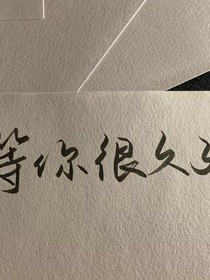 等你很久